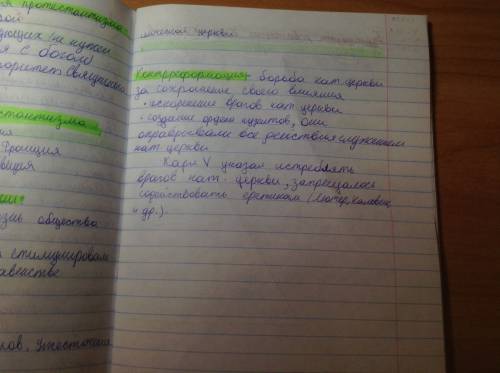 я протестантизма
рой
дующих (не нужен
я с богом)
оритет священного
стантизма
ия
Франция
веция
ии:
знь общества
а стимулировал
равенстве
лов. Ужесточения
католической церкви
Контрреформация: борьба кат. церкви
за сохранение своего влияния
• искоренение врагов кат. церкви
• создание ордена иезуитов, они
оправдывали все действия служением
кат. церкви
Карл V указал истреблять
врагов кат. церкви, запрещалось
содействовать еретикам (Лютер, Кальвин
и др.)